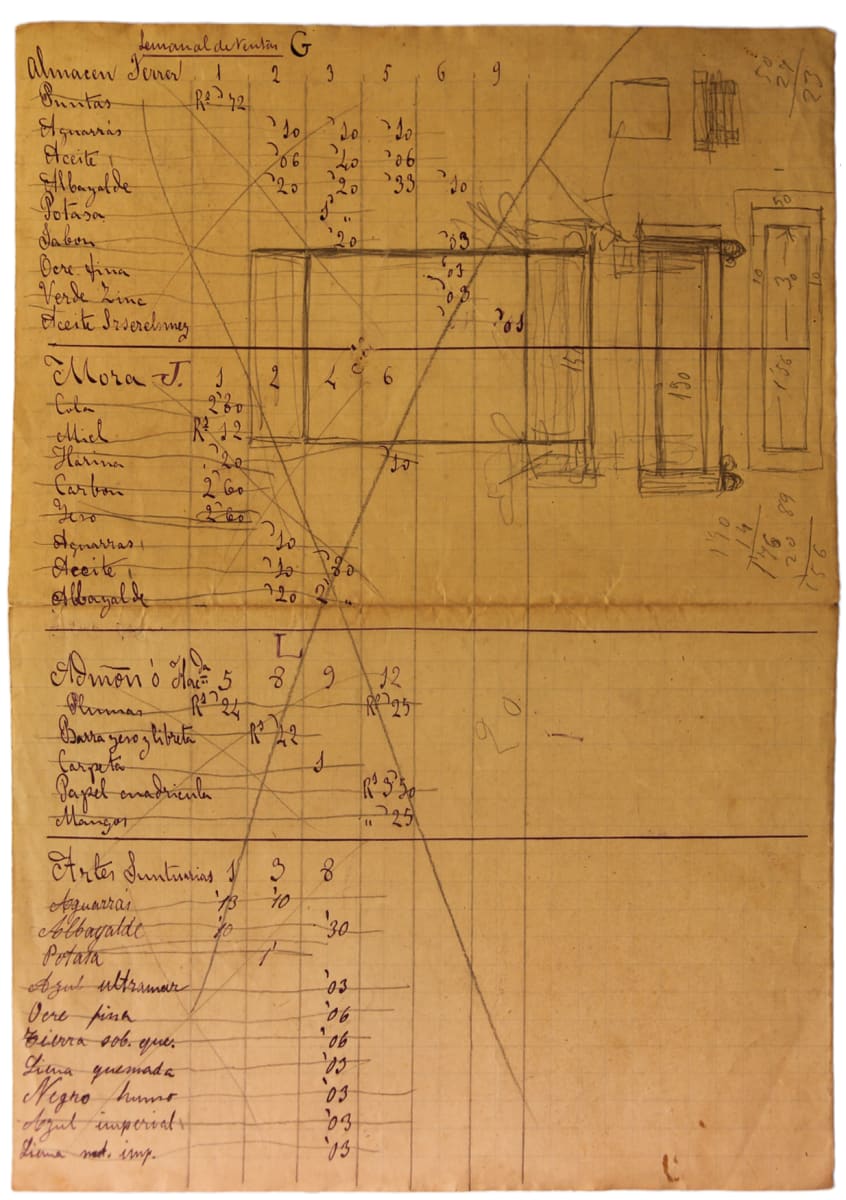 Semanal de Ventas G
Almacen Ferrer 1 2 3 5 6 9
Puntas Rs '72
Aguarrás '10 '10 '10
Aceite '06 '40 '06
Albayalde '20 '20 '33 '10
Potasa 1 "
Jabon '20 '03
Ocre fina '03
Verde Zinc '03
Aceite '01
Mora J. 1 2 4 6
Cola 2'80
Miel Rs '12
Harina '20 '10
Carbon 2'60
Yeso 2'60
Aguarras '10
Aceite '10 '80
Albayalde '20 2 "
L
Admon ó Hacda 5 8 9 12
Plumas Rs '24 Rs '25
Barra yeso y libreta Rs '22
Carpeta 1
Papel cuadricula Rs 3'50
Mangos " '25
Artes Suntuarias 1 3 8
Aguarrás '13 '10
Albayalde '10 '30
Potasa 1'
Azul ultramar '03
Ocre fina '06
Tierra sob. que. '06
Siena quemada '03
Negro humo '03
Azul imperial '03
Siena nat. imp. '03
50
24
23
50
10
30
10
1'56
150
190
1'10
14
1'76
20
89
1'56
20